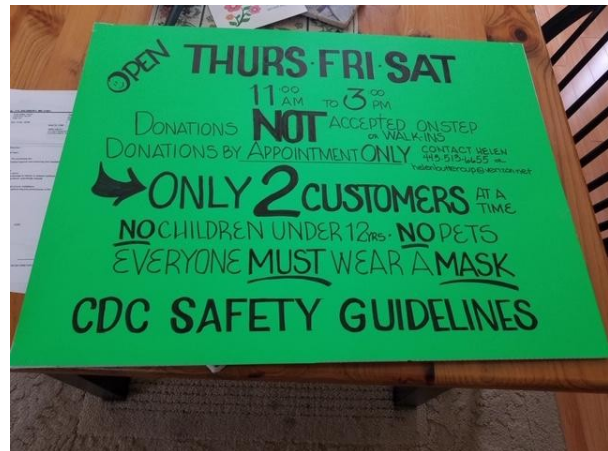 OPEN THURS·FRI·SAT
11 00 AM TO 3 00 PM
DONATIONS NOT ACCEPTED ON STEP
OR WALK-INS
DONATIONS BY APPOINTMENT ONLY CONTACT HELEN
ONLY 2 CUSTOMERS AT A TIME
NO CHILDREN UNDER 12 YRS. NO PETS
EVERYONE MUST WEAR A MASK
CDC SAFETY GUIDELINES